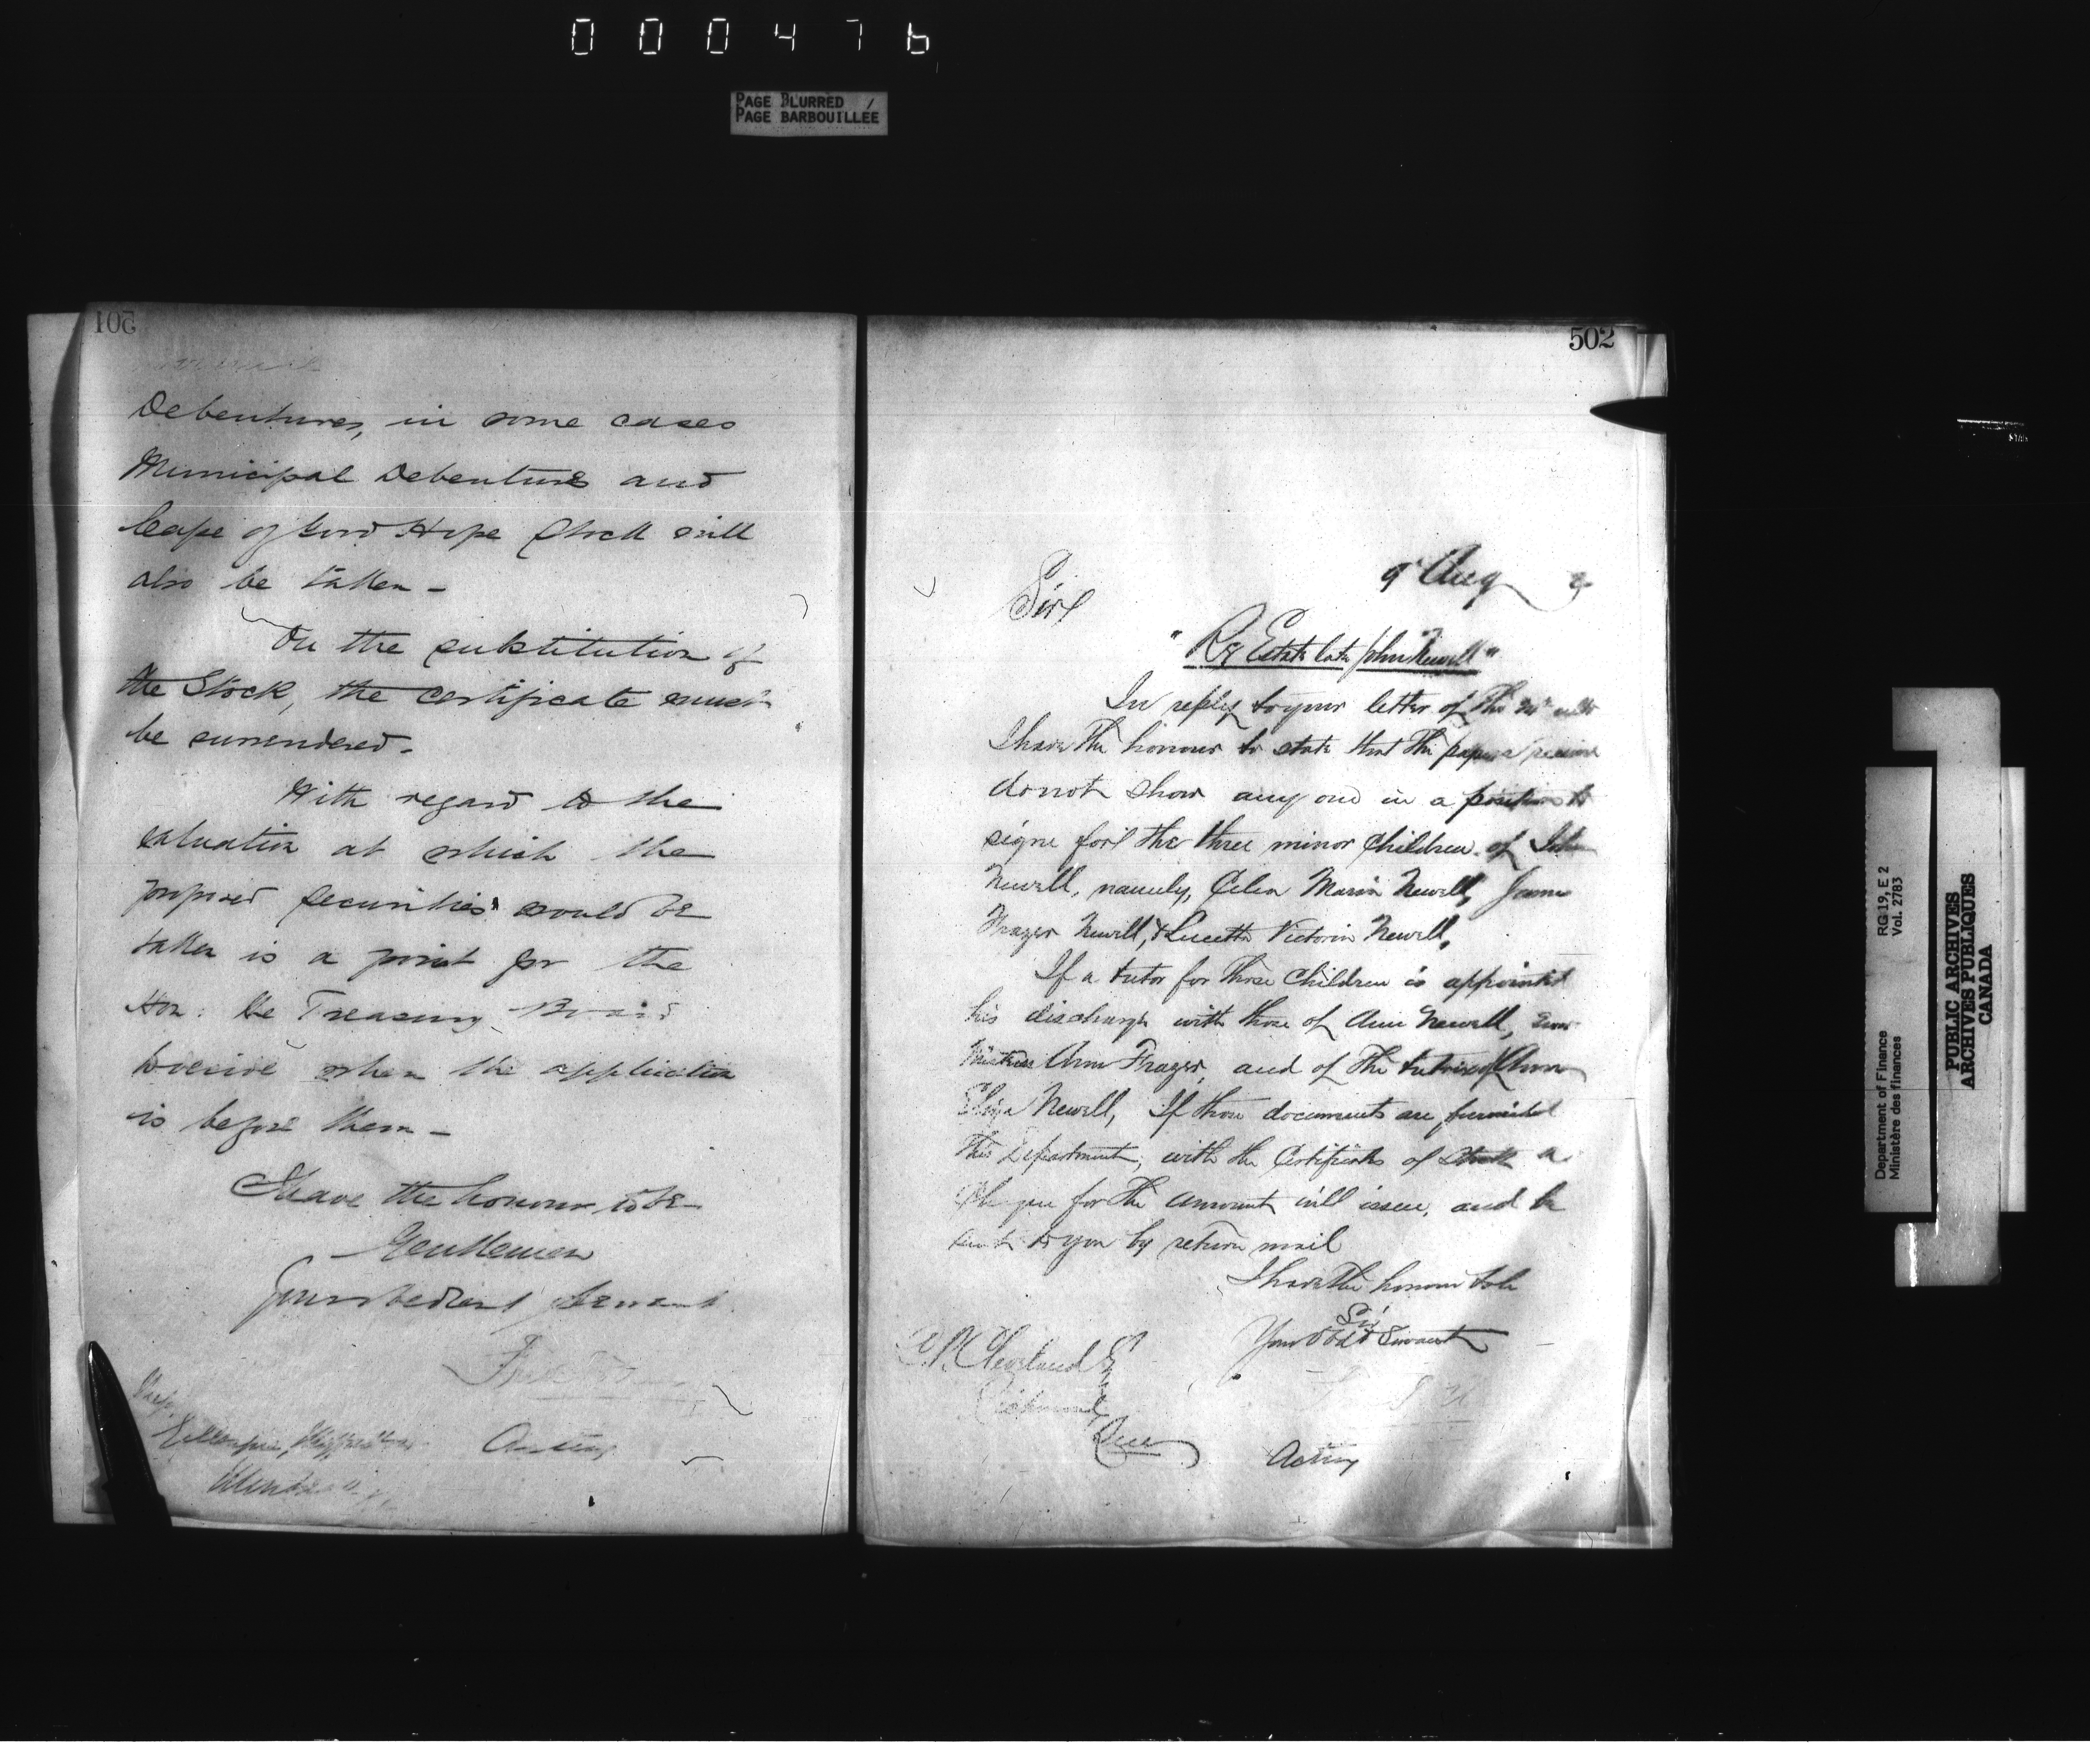 000476
PAGE BLURRED
PAGE BARBOUILLÉE
501
Debentures, in some cases
Municipal Debentures and
Cape of Good Hope Stock will
also be taken -
On the substitution of
the Stock, the certificate must
be surrendered -
With regard to the
valuation at which the
proposed securities would be
taken is a point for the
Hon: the Treasury Board
to decide when the application
is before them -
I have the honour to be
Gentlemen
Your obedient Servant
Acting
502
9 Aug
Sir
"Re Estate late John Newell"
In reply to your letter of the
I have the honour to state that the papers
do not show any one in a position to
signe for the three minor children of John
Newell, namely, Celia Maria Newell, James
Frazer Newell, & Lucetta Victoria Newell,
If a tutor for those children is appointed
his discharge with those of Ann Newell,
Ann Frazer, and of the
Eliza Newell, If those documents are furnished
this Department, with the Certificate of Stock a
cheque for the amount will issue, and be
sent to you by return mail
I have the honour to be
Sir
Your Obdt Servant
Cleveland
Richmond
Que
Acting
Department of Finance RG 19, E 2
Ministère des finances Vol. 2783
PUBLIC ARCHIVES
ARCHIVES PUBLIQUES
CANADA